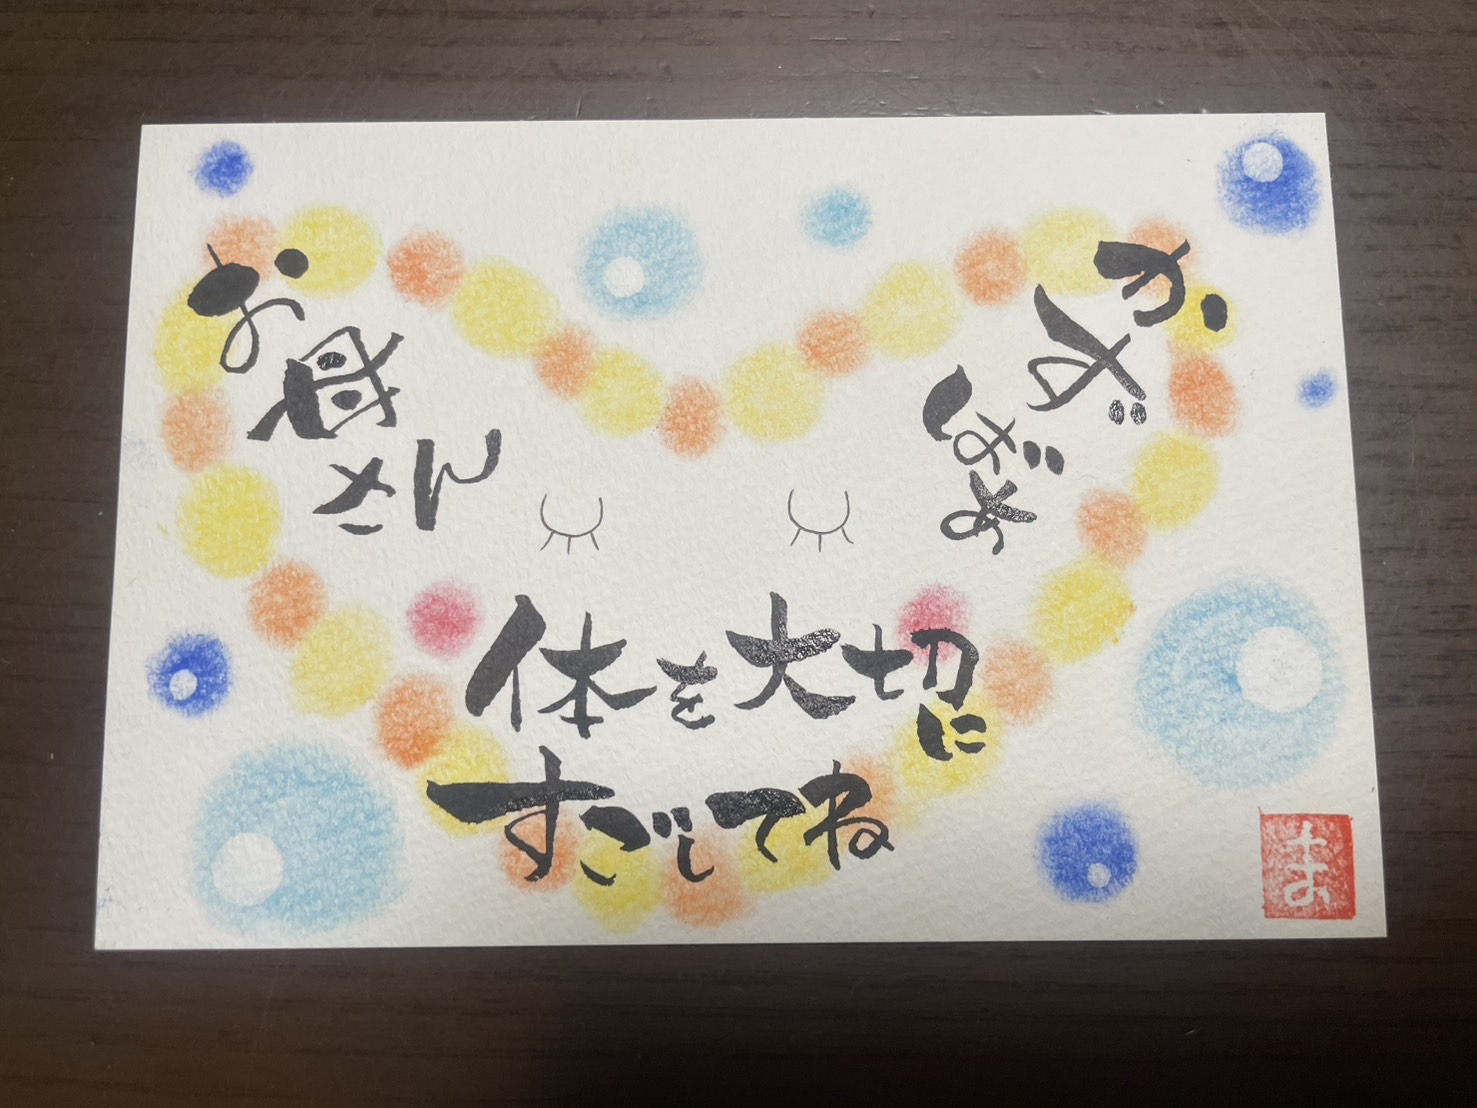 お母さん
かずばぁ
体を大切に
すごしてね
ま